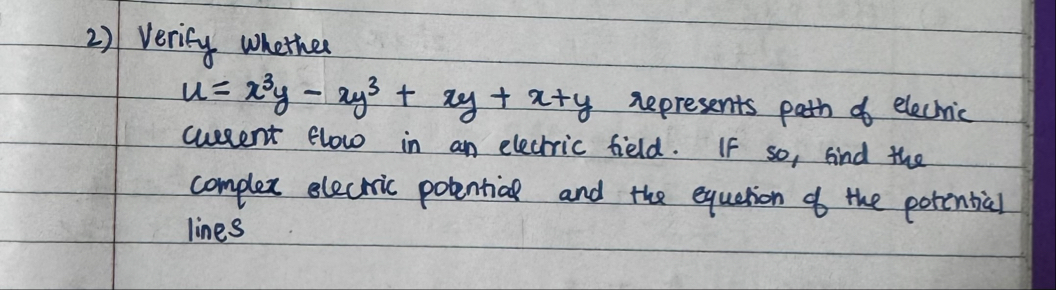 2) Verify whether
u = x³y - xy³ + xy + x+y represents path of electric
current flow in an electric field. If so, find the
complex electric potential and the equation of the potential
lines